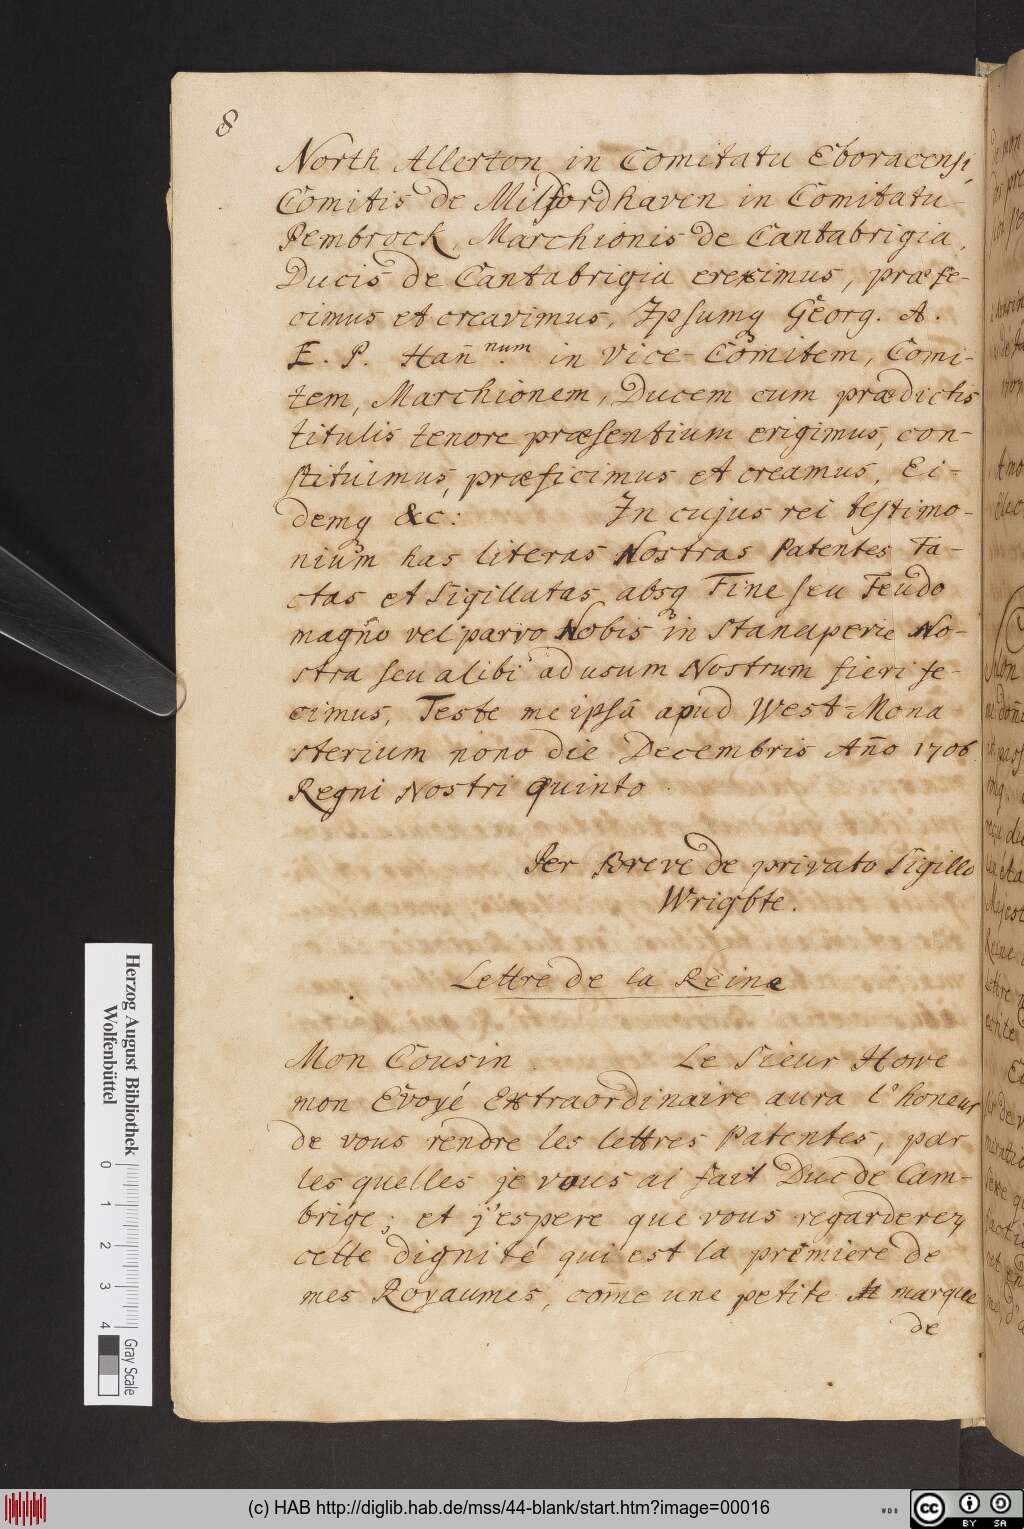 8
North Allerton in Comitatu Eboracensi,
Comitis de Milfordhaven in Comitatu
Pembrock, Marchionis de Cantabrigia,
Ducis de Cantabrigia ereximus, præfe-
cimus et creavimus, Ipsumq Georg. A.
E. P. Han̄num in Vice-Comitem, Comi-
tem, Marchionem, Ducem cum prædictis
titulis tenore præsentium erigimus, con-
stituimus, præficimus et creamus, Ei-
demq &c: In cujus rei testimo-
nium has literas Nostras Patentes Fa-
ctas et Sigillatas absq Fine seu Feudo
magno vel parvo Nobis in Hanaperie No-
stra seu alibi ad usum Nostrum fieri fe-
cimus, Teste me ipsâ apud West=Mona
sterium nono die Decembris Año 1706.
Regni Nostri Quinto.
Per Breve de privato Sigillo
Wrigbte.
Lettre de la Reine
Mon Cousin. Le Sieur Howe
mon Evoyé Extraordinaire aura l'honeur
de vous rendre les lettres Patentes, par
les quelles je vous ai fait Duc de Cam-
brige; et j'espere que vous regarderez
cette dignité qui est la premiere de
mes Royaumes, com̄e une petite marque
de
Herzog August Bibliothek
Wolfenbüttel
0 1 2 3 4
Gray Scale
(c) HAB http://diglib.hab.de/mss/44-blank/start.htm?image=00016
WDB
cc BY SA